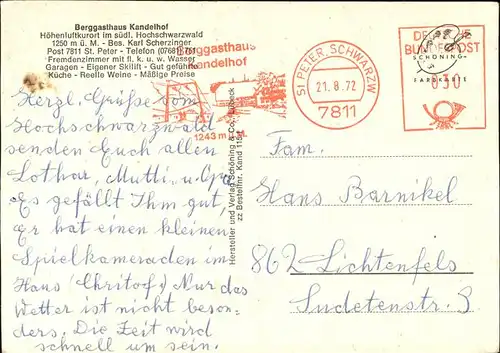 Berggasthaus Kandelhof
Höhenluftkurort im südl. Hochschwarzwald
1250 m ü. M. - Bes. Karl Scherzinger
Post 7811 St. Peter - Telefon (0768
Fremdenzimmer mit fl. k. u. w. Wasser
Garagen - Eigener Skilift - Gut geführte
Küche - Reelle Weine - Mäßige Preise
Berggasthaus
Kandelhof
1243 m
ST PETER, SCHWARZW
21.8.72
7811
DEUTSCHE
BUNDESPOST
SCHÖNING-
FARBKARTE
030
Hersteller und Verlag Schöning & Co., Lübeck
zz Bestellnr. Kand 115
Herzl. Grüße vom
Hochschwarzwald
senden Euch allen
Lothar, Mutti u. Opa
Es gefällt Ihm gut,
Er hat einen kleinen
Spielkameraden im
Haus (Chritof) Nur das
Wetter ist nicht beson-
ders. Die Zeit wird
schnell um sein.
Fam.
Hans Barnikel
862 Lichtenfels
Sudetenstr. 3